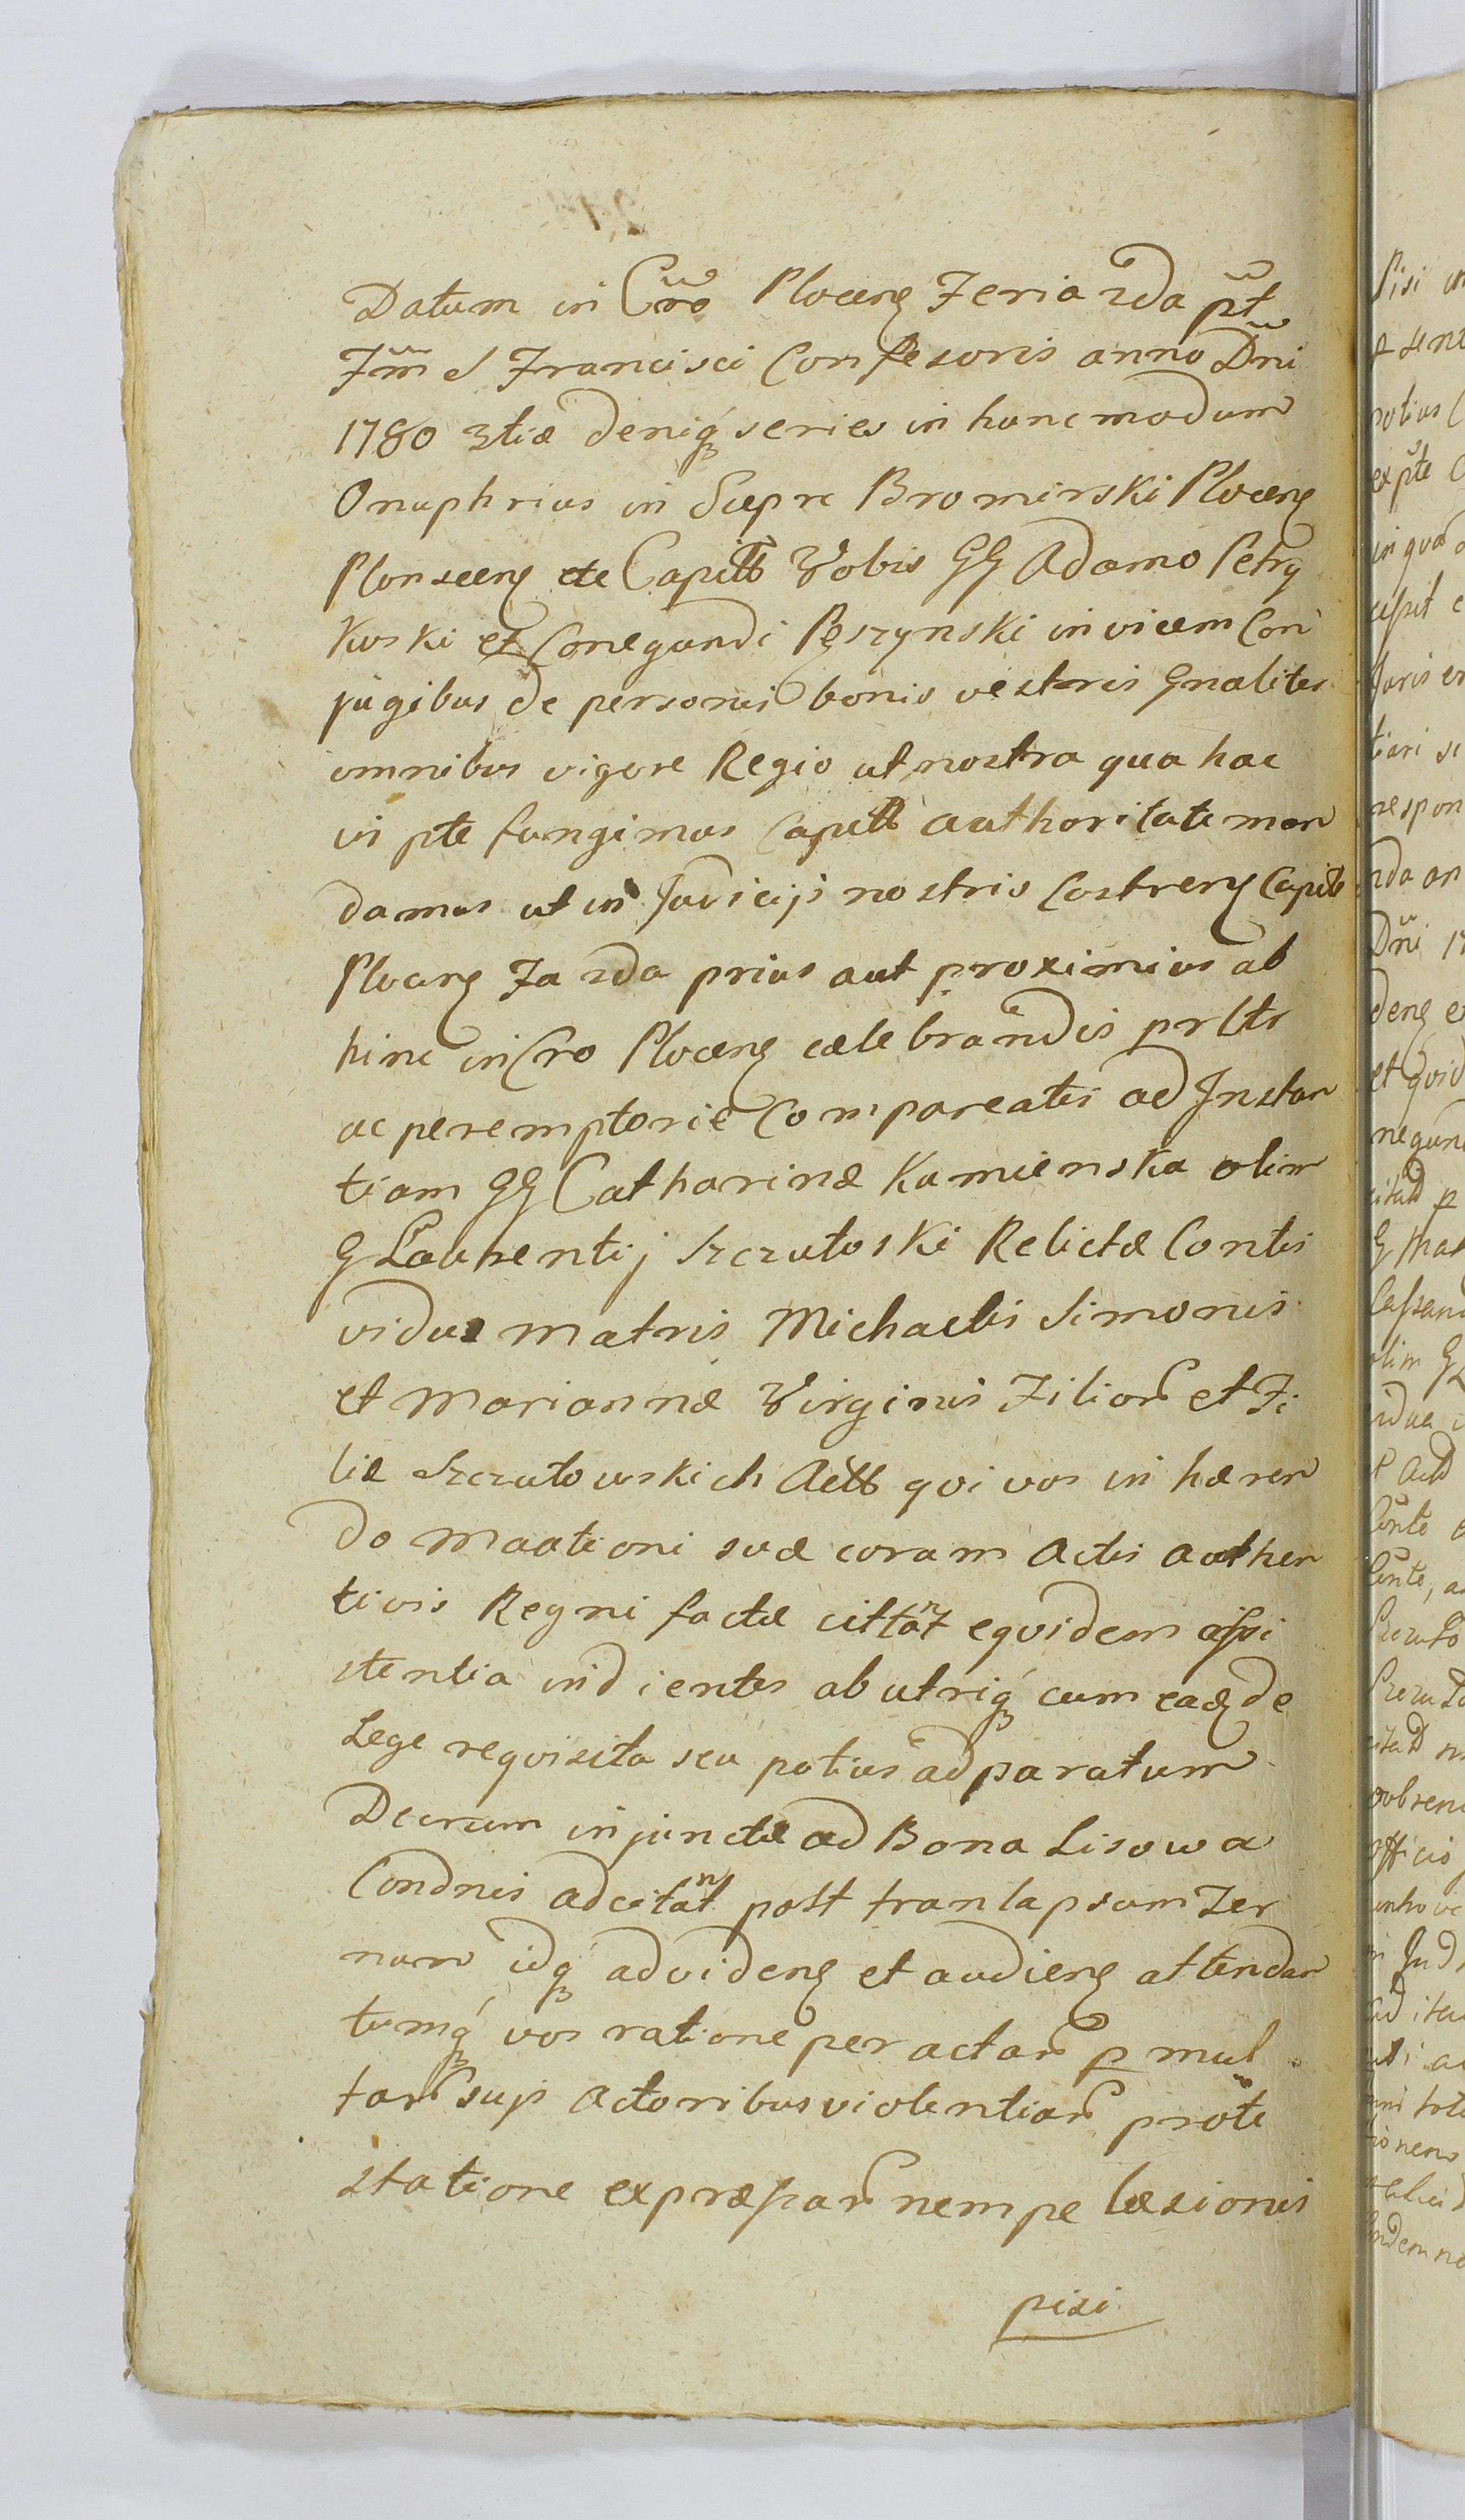 Datum in Cro Plocen Feria 2da pt
Fm S Francisci Confessoris anno Dni
1780 3tiæ deniq series in hunc modum
Onuphrius in Siepre Bromirski Plocen
Plonscen etc Capitt Vobis GG Adamo Petry
kuski et Conegundi Pęszynski invicem Con
jugibus de personis bonis vestris Gnaliter
omnibus vigore Regio ut nostra qua hac
in pte fungimus Capitt authoritate man
damus ut in Judiciji nostris Castren Capit
Plocen Fa 2da prius aut proximius ab
hinc in Cro Plocen cælebrandis prltr
ac peremptorie Compareatis ad Instan
tiam GG Catharinæ Kamienska olim
G Laurentij Szczutoski Relictæ Contis
viduæ matris Michaelis Simonis
et Mariannæ Virginis Filior et Fi
liæ Szczutowskich Actt qvi vos in hæren
do Maationi suæ coram Actis authen
ticis Regni factæ cittant eqvidem assi
stentia indicentes ab utriq cum eadẽ de
Lege reqvisita seu potius ad paratum
Decrum injunctæ ad Bona Lisowa
Condnis adcitant post tranlapsum Ter
num idq ad viden et audien attendan
tumq vos ratione peractar p mul
tar sup Actoribus violentiar prote
statione expræssar nempe læsionis
pisi